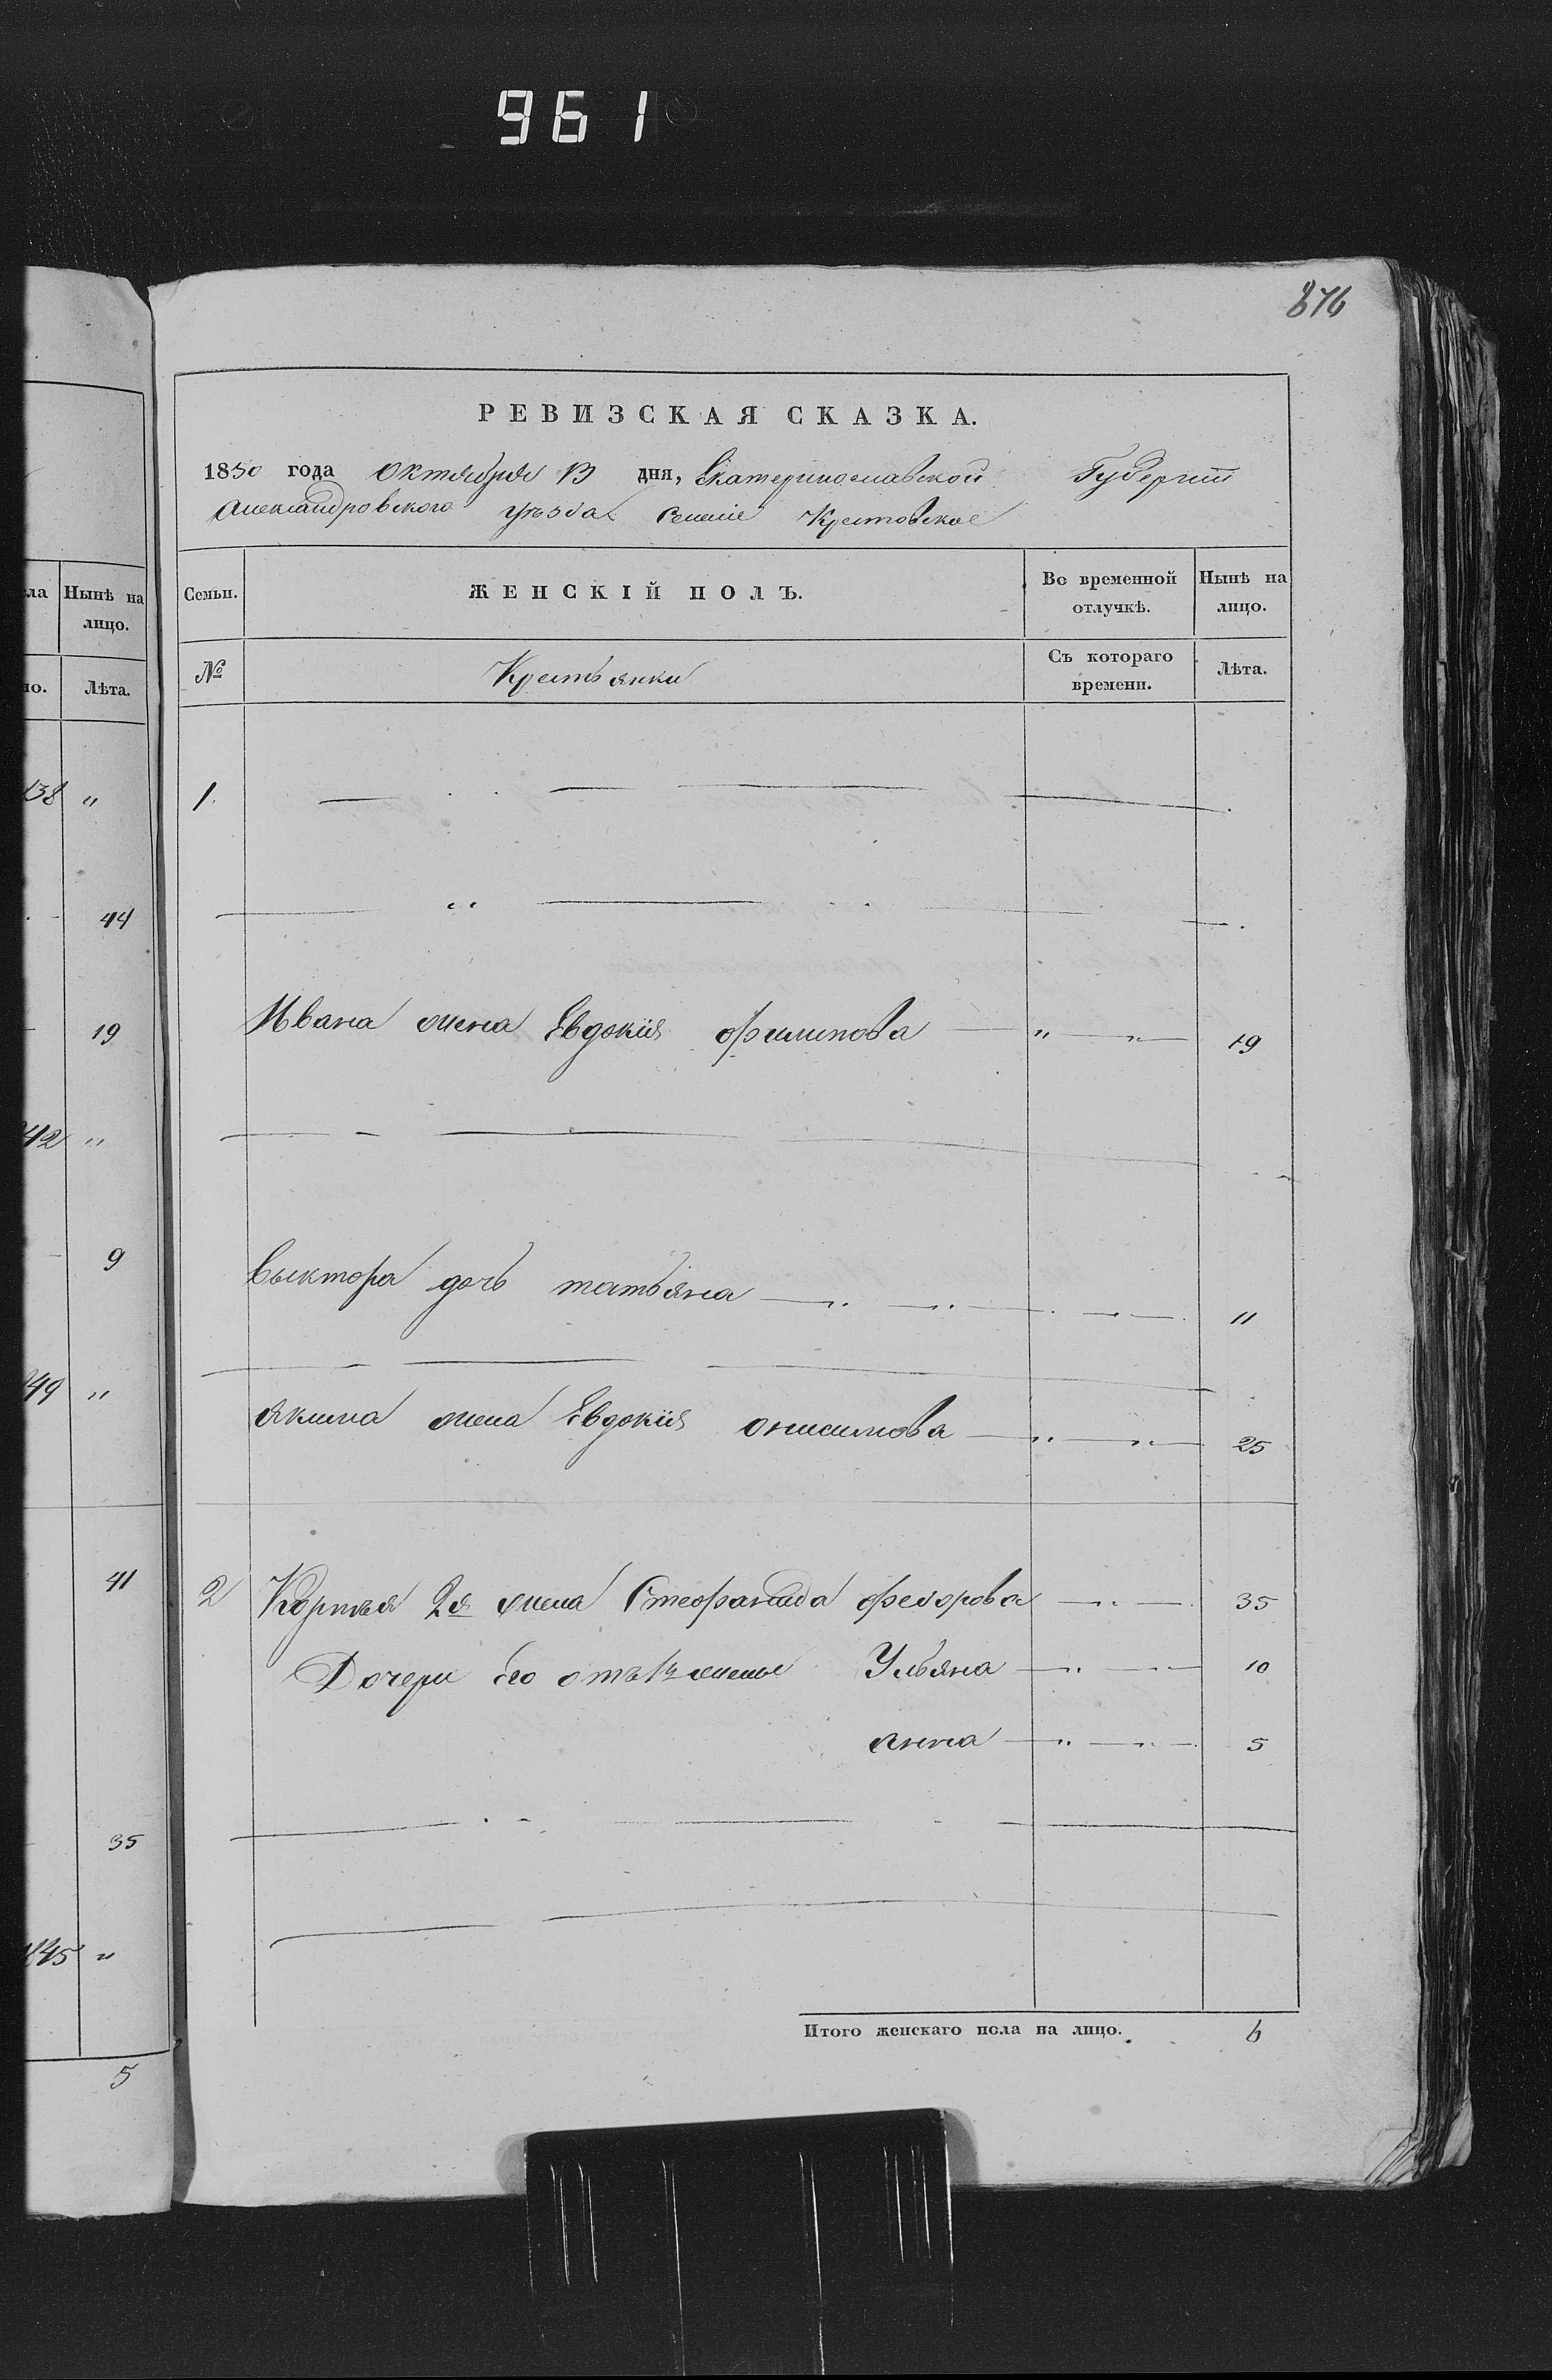 961
876
РЕВИЗСКАЯ СКАЗКА.
1850 года Октября 13 дня, Екатеринославской Губернии
Александровского уѣзда Селеніе Крестовское
ла Нынѣ на лицо.
но. Лѣта.
Семьи. ЖЕНСКІЙ ПОЛЪ. Во временной отлучкѣ. Нынѣ на лицо.
№ Крестьянки Съ котораго времени. Лѣта.
138 "
1.
44
19
Ивана жена Евдокия Филипова " " 19
142 "
9
Выктора дочь татьяна 11
149 "
Якима жена Евдокия Онисимова " " 25
41
2 Кормея 2я жена Стефанида Федорова " 35
Дочери его отъ 1й жены Ульяна " " 10
Анна " " 5
35
1845 "
Итого женскаго пола на лицо. 6
5